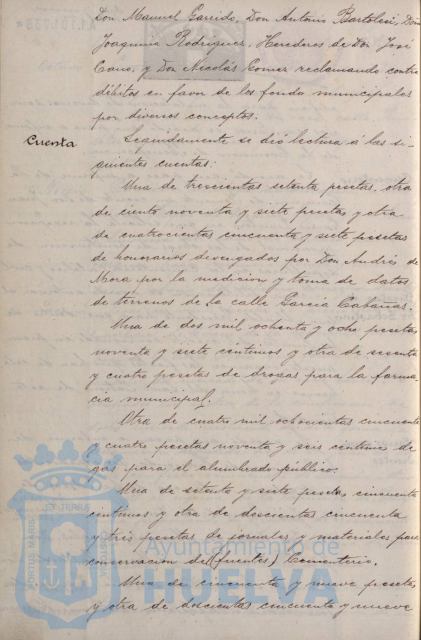 Don Manuel Garrido, Don Antonio Bartolesi, Don
Joaquina Rodriguez, Herederos de Don José
Cano, y Don Nicolás Gomez reclamando contra
débitos en favor de los fondos municipales
por diversos conceptos.
Cuenta
Seguidamente se dió lectura á las si-
guientes cuentas:
Una de trescientas setenta pesetas, otra
de ciento noventa y siete pesetas y otra
de cuatrocientas cincuenta y siete pesetas
de honorarios devengados por Don Andrés de
Mora por la medicion y toma de datos
de terrenos de la calle Garcia Cabañas.
Una de dos mil ochenta y ocho pesetas
noventa y siete centimos y otra de sesenta
y cuatro pesetas de drogas para la farma-
cia municipal.
Otra de cuatro mil ochocientas cincuenta
y cuatro pesetas noventa y seis centimos de
gas para el alumbrado público.
Una de setenta y siete pesetas cincuenta
centimos y otra de doscientas cincuenta
y tres pesetas de jornales y materiales para
conservacion de (fuentes) Cementerio.
Una de cincuenta y nueve pesetas
y otra de doscientas cincuenta y nueve
Ayuntamiento de
HUELVA